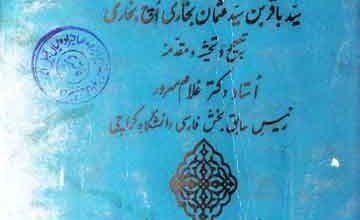 سیّد باقر بن سیّد عثمان بخاری اوچ بخاری
تصحیح و تحشیه و مقدمه
استاد دکتر غلام سرور
رئیس سابق بخش فارسی دانشگاه کراچی